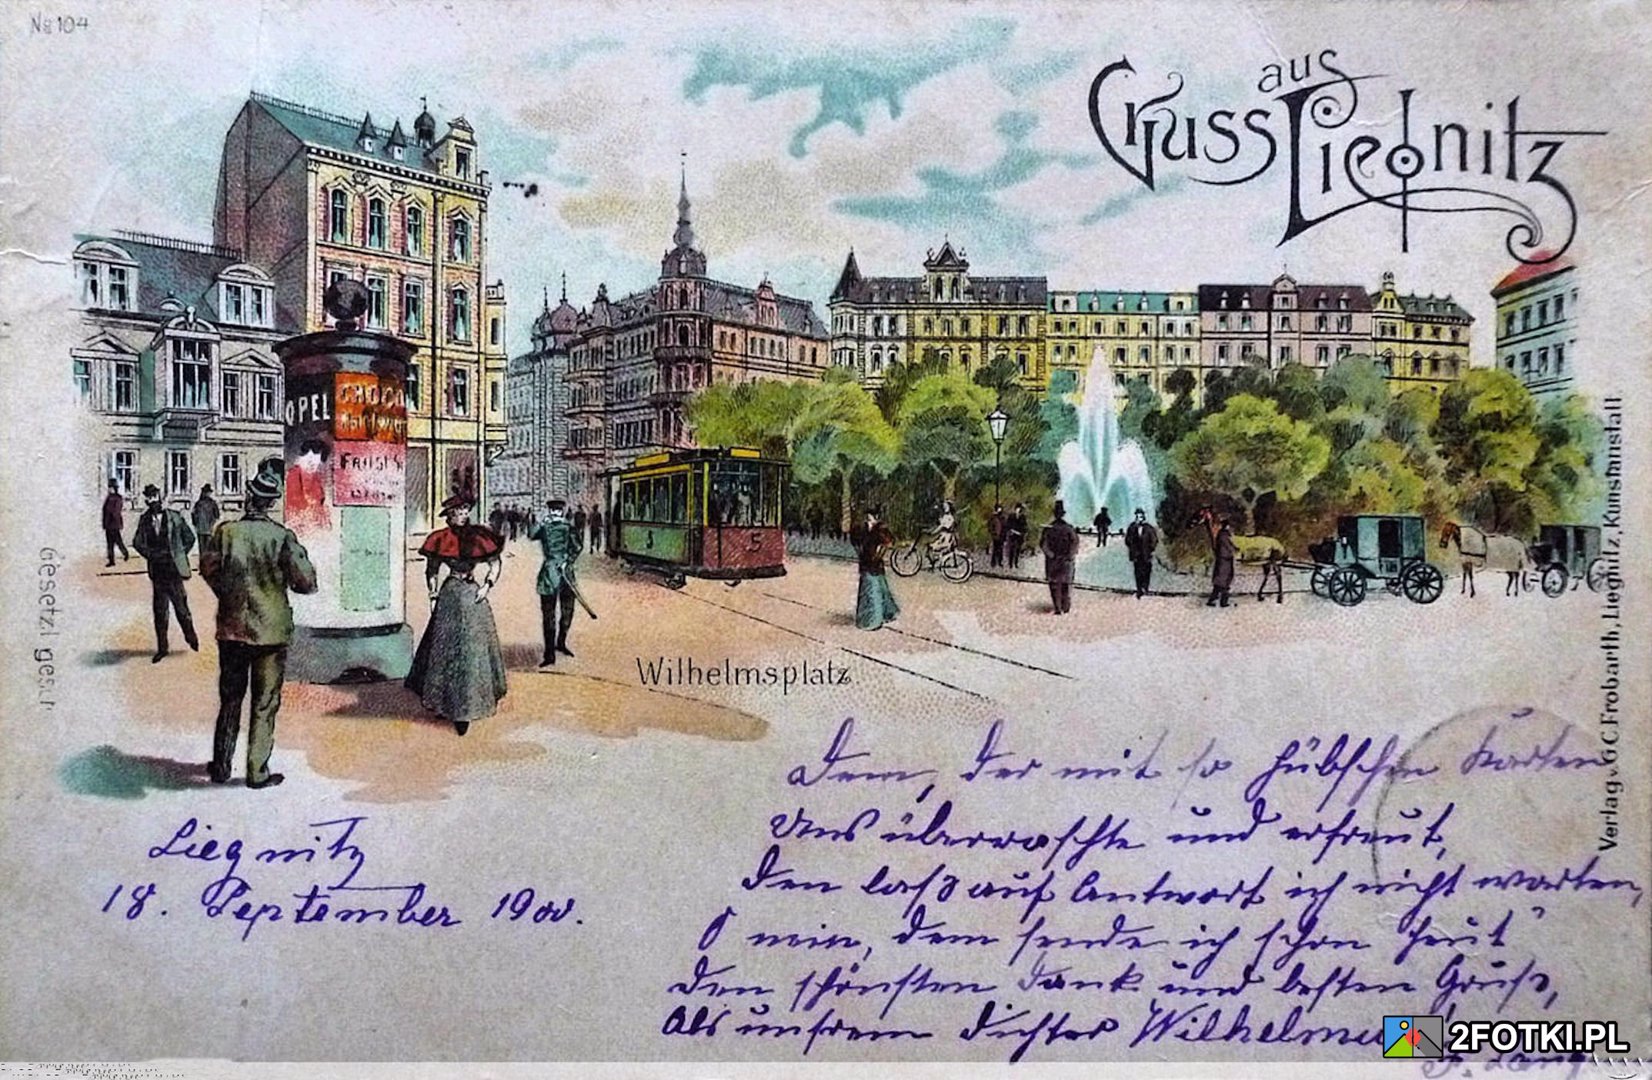 No 104
Gruss aus Liegnitz
OPEL
CHOCO
Wilhelmsplatz.
Gesetzl. gesch.
Verlag v. G.C. Frobarth, Liegnitz, Kunstanstalt
3
5
Liegnitz
18. September 1900.
Dem, der mit so hübschen Karten
Uns überraschte und erfreut,
Den laß auf Antwort ich nicht warten,
O nein, dem sende ich schon heut'
Den schönsten Dank und besten Gruß,
Als unsrem Dichter
2FOTKI.PL